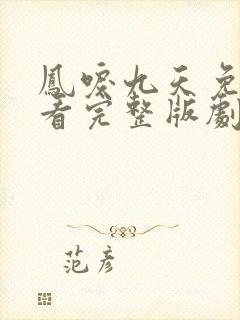 鳳唳九天免
看完整版劇
范彥